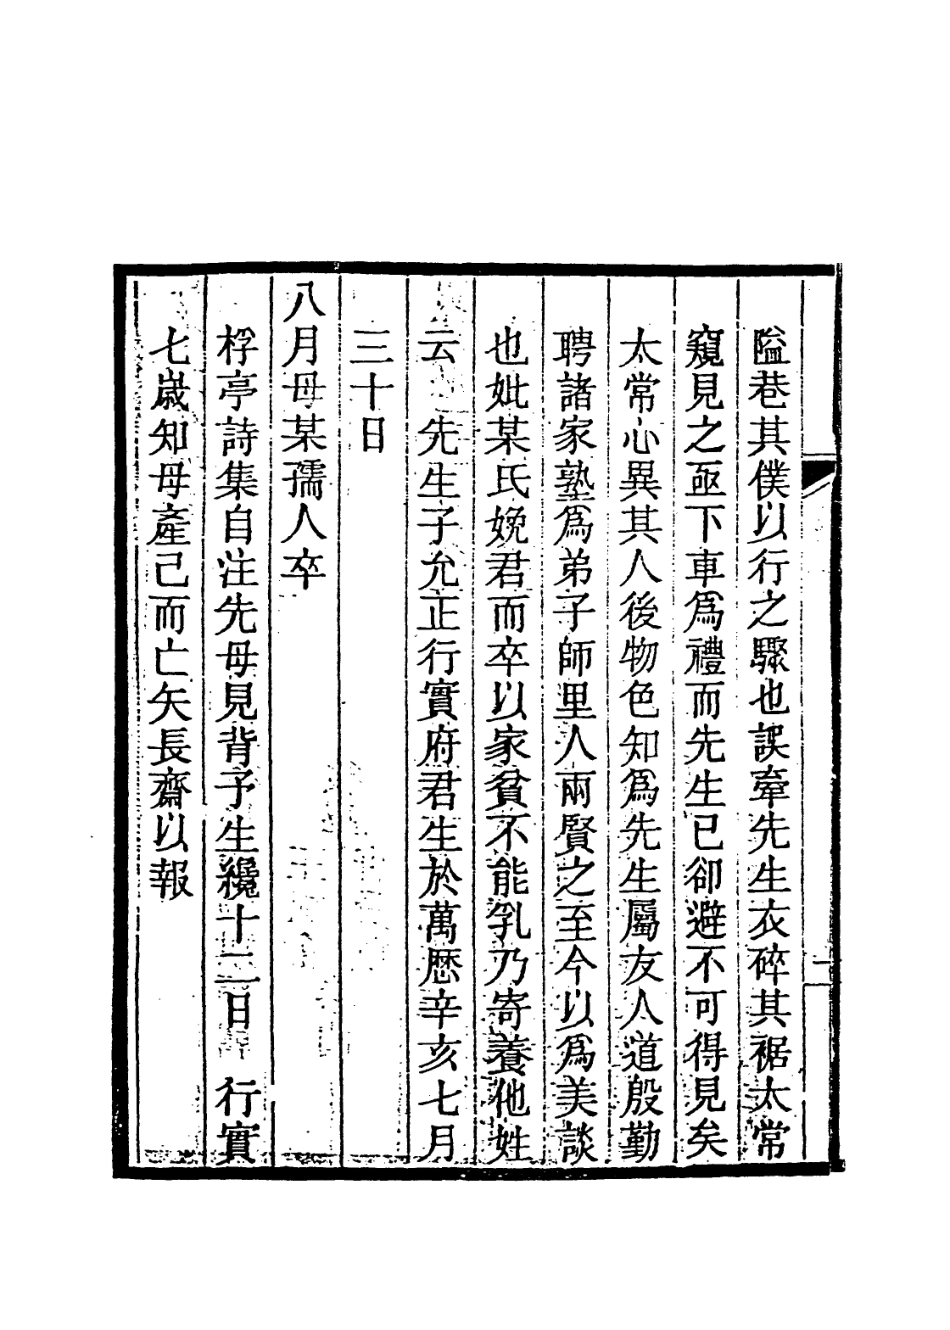 隘巷其僕以行之驟也誤牽先生衣碎其裾太常
窺見之亟下車爲禮而先生已卻避不可得見矣
太常心異其人後物色知爲先生屬友人道殷勤
聘諸家塾爲弟子師里人兩賢之至今以爲美談
也妣某氏娩君而卒以家貧不能乳乃寄養他姓
云 先生子允正行實府君生於萬厯辛亥七月
三十日
八月母某孺人卒
桴亭詩集自注先母見背予生纔十二日 行實
七歲知母產己而亡矢長齋以報
二